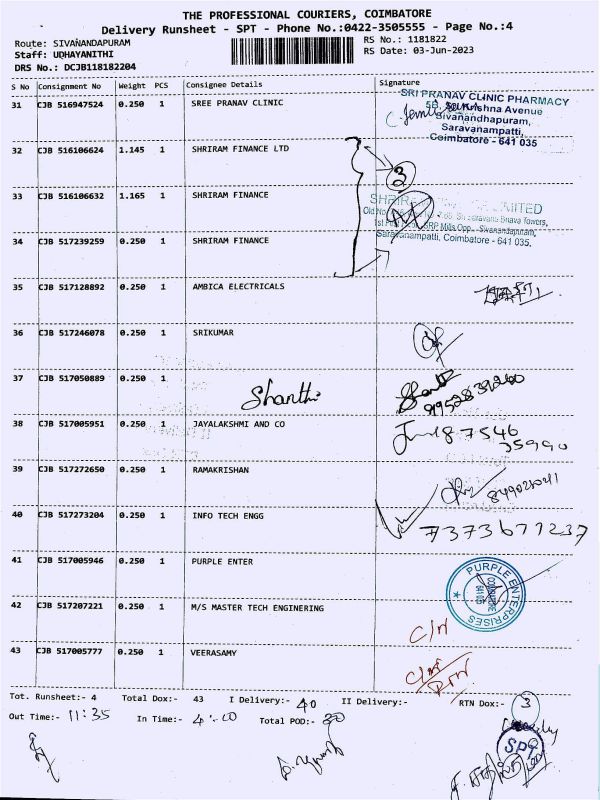 THE PROFESSIONAL COURIERS, COIMBATORE
Delivery Runsheet - SPT - Phone No.:0422-3505555 - Page No.:4
Route: SIVANANDAPURAM RS No.: 1181822
Staff: UDHAYANITHI RS Date: 03-Jun-2023
DRS No.: DCJB118182204
S No Consignment No Weight PCS Consignee Details Signature
31 CJB 516947524 0.250 1 SREE PRANAV CLINIC
SRI PRANAV CLINIC PHARMACY
5B, Sri Krishna Avenue
Sivanandhapuram,
Saravanampatti,
Coimbatore - 641 035
32 CJB 516106624 1.145 1 SHRIRAM FINANCE LTD
3
33 CJB 516106632 1.165 1 SHRIRAM FINANCE
LIMITED
Towers,
SRP Mills Opp., Sivanandapuram,
Saravanampatti, Coimbatore - 641 035.
34 CJB 517239259 0.250 1 SHRIRAM FINANCE
35 CJB 517128892 0.250 1 AMBICA ELECTRICALS
36 CJB 517246078 0.250 1 SRIKUMAR
37 CJB 517050889 0.250 1 Shanthi
38 CJB 517005951 0.250 1 JAYALAKSHMI AND CO
39 CJB 517272650 0.250 1 RAMAKRISHAN
40 CJB 517273204 0.250 1 INFO TECH ENGG
7373677237
41 CJB 517005946 0.250 1 PURPLE ENTER
PURPLE ENTERPRISES
COIMBATORE
641 035
42 CJB 517207221 0.250 1 M/S MASTER TECH ENGINERING
43 CJB 517005777 0.250 1 VEERASAMY
RTN
Tot. Runsheet:- 4 Total Dox:- 43 I Delivery:- 40 II Delivery:- RTN Dox:- 3
Out Time:- 11:35 In Time:- 4:00 Total POD:-
SPT